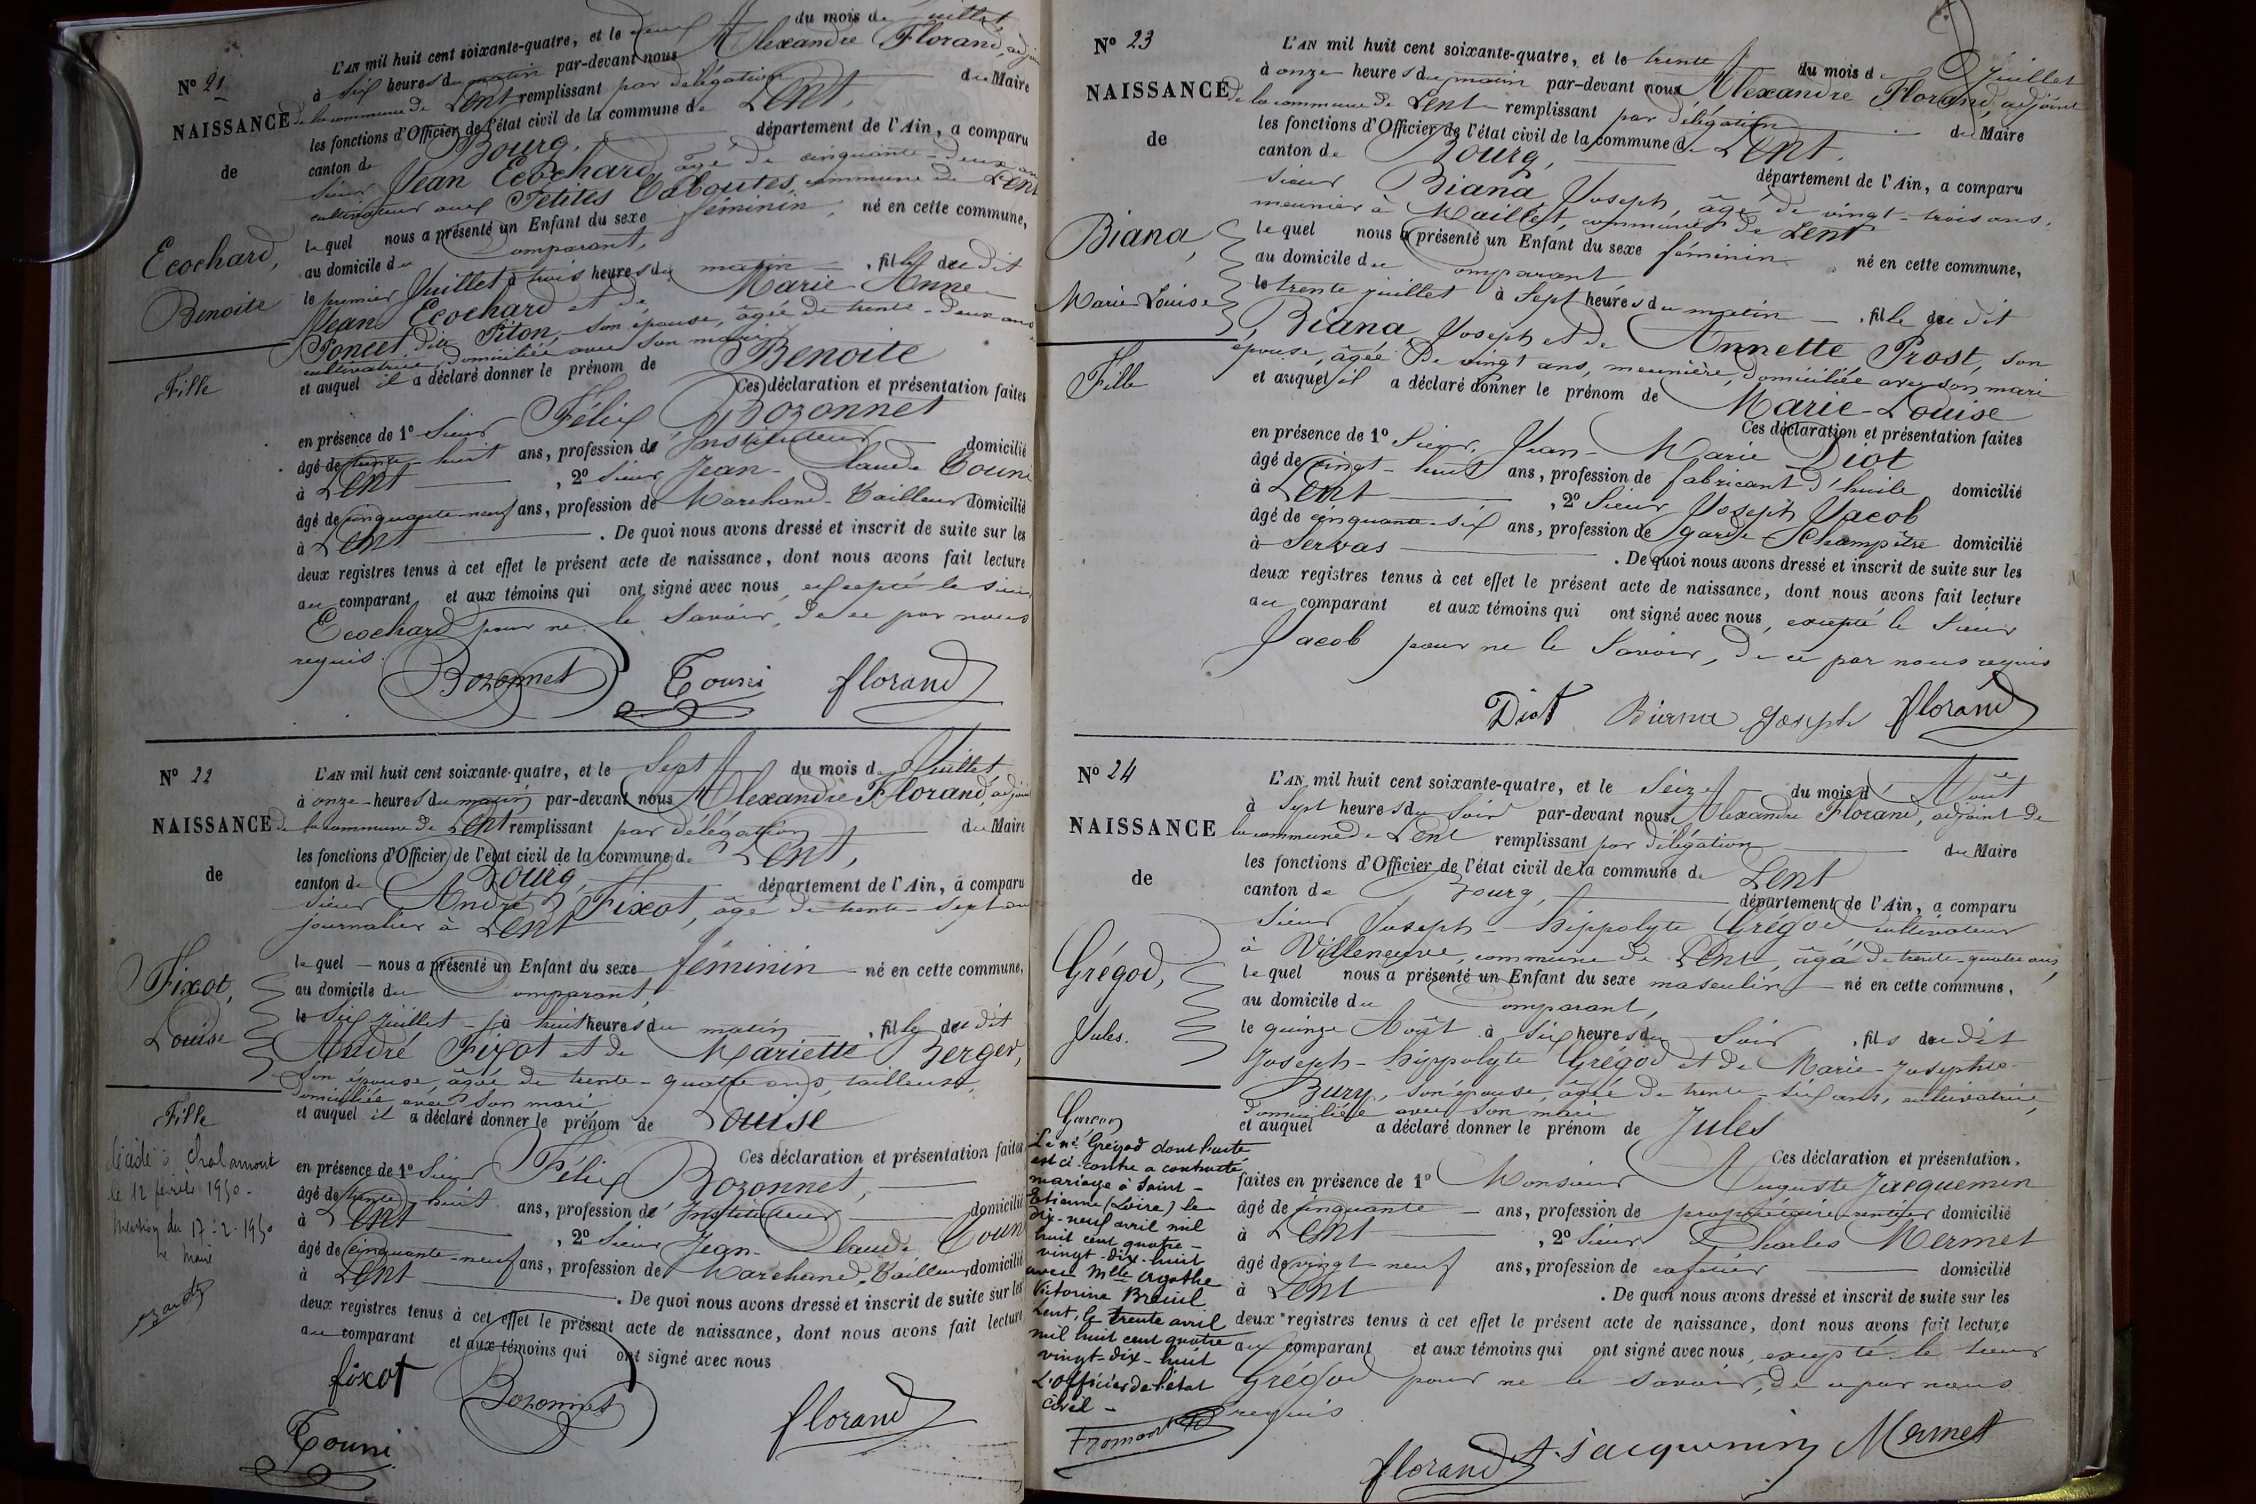 N° 21
NAISSANCE
de
Ecochard,
Benoite
Fille
L'AN mil huit cent soixante-quatre, et le deux du mois de Juillet,
à six heures du matin par-devant nous Alexandre Florand, adjoint
de la commune de Lent remplissant par délégation du Maire
les fonctions d'Officier de l'état civil de la commune de Lent,
canton de Bourg, département de l'Ain, a comparu
sieur Jean Ecochard, âgé de cinquante-deux ans
cultivateur aux Petites commune de Lent
le quel nous a présenté un Enfant du sexe féminin, né en cette commune,
au domicile du comparant,
le premier Juillet à trois heures du matin, fille du dit
Jean Ecochard et de Marie-Anne
Poncet dite Piton, son épouse, âgée de trente-deux ans
cultivatrice, domiciliée avec son mari
et auquel il a déclaré donner le prénom de Benoite
Ces déclaration et présentation faites
en présence de 1° Sieur Félix Bozonnet
âgé de trente-huit ans, profession de Instituteur domicilié
à Lent, 2° Sieur Jean-Claude Touni
âgé de cinquante-neuf ans, profession de Marchand-Tailleur domicilié
à Lent. De quoi nous avons dressé et inscrit de suite sur les
deux registres tenus à cet effet le présent acte de naissance, dont nous avons fait lecture
au comparant et aux témoins qui ont signé avec nous, excepté le sieur
Ecochard pour ne le savoir, de ce par nous
requis.
Bozonnet Touni florand
N° 22
NAISSANCE
de
Fixot,
Louise
Fille
décédée à Chalamont
le 12 février 1950-
mention du 17-2-1950
le maire
L'AN mil huit cent soixante-quatre, et le Sept du mois de Juillet
à onze heures du matin par-devant nous Alexandre Florand, adjoint
de la commune de Lent remplissant par délégation du Maire
les fonctions d'Officier de l'état civil de la commune de Lent,
canton de Bourg, département de l'Ain, a comparu
sieur André Fixot, âgé de trente-sept ans
journalier à Lent
le quel nous a présenté un Enfant du sexe féminin né en cette commune,
au domicile du comparant,
le six juillet à huit heures du matin, fille du dit
André Fixot et de Mariette Berger,
son épouse, âgée de trente-quatre ans, tailleuse,
domiciliée avec son mari
et auquel il a déclaré donner le prénom de Louise
Ces déclaration et présentation faites
en présence de 1° Sieur Félix Bozonnet,
âgé de trente-huit ans, profession de Instituteur domicilié
à Lent, 2° Sieur Jean-Claude Touni
âgé de cinquante-neuf ans, profession de Marchand-Tailleur domicilié
à Lent. De quoi nous avons dressé et inscrit de suite sur les
deux registres tenus à cet effet le présent acte de naissance, dont nous avons fait lecture
au comparant et aux témoins qui ont signé avec nous
fixot Bozonnet florand
Touni
N° 23
NAISSANCE
de
Biana,
Marie-Louise
Fille
L'AN mil huit cent soixante-quatre, et le trente du mois de Juillet
à onze heures du matin par-devant nous Alexandre Florand, adjoint
de la commune de Lent remplissant par délégation du Maire
les fonctions d'Officier de l'état civil de la commune de Lent.
canton de Bourg, département de l'Ain, a comparu
sieur Biana Joseph, âgé de vingt-trois ans,
meunier à Maillet, commune de Lent
le quel nous a présenté un Enfant du sexe féminin, né en cette commune,
au domicile du comparant
le trente juillet à sept heures du matin, fille du dit
Biana Joseph et de Annette Prost, son
épouse, âgée de vingt ans, meunière, domiciliée avec son mari
et auquel il a déclaré donner le prénom de Marie-Louise
Ces déclaration et présentation faites
en présence de 1° Sieur Jean-Marie Diot
âgé de vingt-huit ans, profession de fabricant d'huile domicilié
à Lent, 2° Sieur Joseph Jacob
âgé de cinquante-six ans, profession de garde-champêtre domicilié
à Servas. De quoi nous avons dressé et inscrit de suite sur les
deux registres tenus à cet effet le présent acte de naissance, dont nous avons fait lecture
au comparant et aux témoins qui ont signé avec nous, excepté le sieur
Jacob pour ne le savoir, de ce par nous requis
Diot Biana Joseph florand
N° 24
NAISSANCE
de
Grégod,
Jules.
Garçon
Le né Grégod dont l'acte
est ci-contre a contracté
mariage à Saint-
Etienne (Loire) le
dix-neuf avril mil
huit cent quatre-
vingt-dix-huit
avec Mlle Agathe
Victorine Breuil
Lent, le trente avril
mil huit cent quatre
vingt-dix-huit
L'officier de l'état
civil -
L'AN mil huit cent soixante-quatre, et le Seize du mois d'Août
à sept heures du soir par-devant nous Alexandre Florand, adjoint de
la commune de Lent remplissant par délégation du Maire
les fonctions d'Officier de l'état civil de la commune de Lent
canton de Bourg, département de l'Ain, a comparu
Sieur Joseph-hippolyte Grégod cultivateur
à Villeneuve, commune de Lent, âgé de trente-quatre ans,
le quel nous a présenté un Enfant du sexe masculin né en cette commune,
au domicile du comparant,
le quinze Août à six heures du soir, fils du dit
Joseph-hippolyte Grégod et de Marie-Josephte
Bury, son épouse, âgée de trente-six ans, cultivatrice,
domiciliée avec son mari
et auquel a déclaré donner le prénom de Jules
Ces déclaration et présentation.
faites en présence de 1° Monsieur Auguste Jacquemin
âgé de cinquante ans, profession de propriétaire rentier domicilié
à Lent, 2° Sieur Charles Mermet
âgé de vingt neuf ans, profession de cafetier domicilié
à Lent. De quoi nous avons dressé et inscrit de suite sur les
deux registres tenus à cet effet le présent acte de naissance, dont nous avons fait lecture
au comparant et aux témoins qui ont signé avec nous, excepté le sieur
Grégod pour ne le savoir, de ce par nous
requis
florand A. jacquemin Mermet